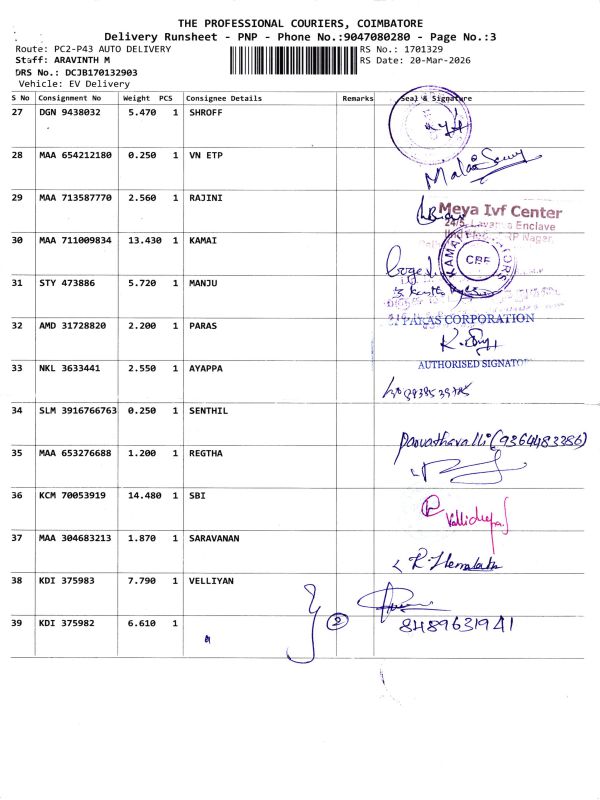 THE PROFESSIONAL COURIERS, COIMBATORE
Delivery Runsheet - PNP - Phone No.:9047080280 - Page No.:3
Route: PC2-P43 AUTO DELIVERY
RS No.: 1701329
Staff: ARAVINTH M
RS Date: 20-Mar-2026
DRS No.: DCJB170132903
Vehicle: EV Delivery
S No Consignment No Weight PCS Consignee Details Remarks Seal & Signature
27 DGN 9438032 5.470 1 SHROFF
28 MAA 654212180 0.250 1 VN ETP
29 MAA 713587770 2.560 1 RAJINI
Meya Ivf Center
Enclave
30 MAA 711009834 13.430 1 KAMAI
CBE
31 STY 473886 5.720 1 MANJU
32 AMD 31728820 2.200 1 PARAS
PARAS CORPORATION
33 NKL 3633441 2.550 1 AYAPPA
AUTHORISED
34 SLM 3916766763 0.250 1 SENTHIL
Parvathavalli (9364483386)
35 MAA 653276688 1.200 1 REGTHA
36 KCM 70053919 14.480 1 SBI
37 MAA 304683213 1.870 1 SARAVANAN
R. Hemalatha
38 KDI 375983 7.790 1 VELLIYAN
39 KDI 375982 6.610 1
2
8489631941